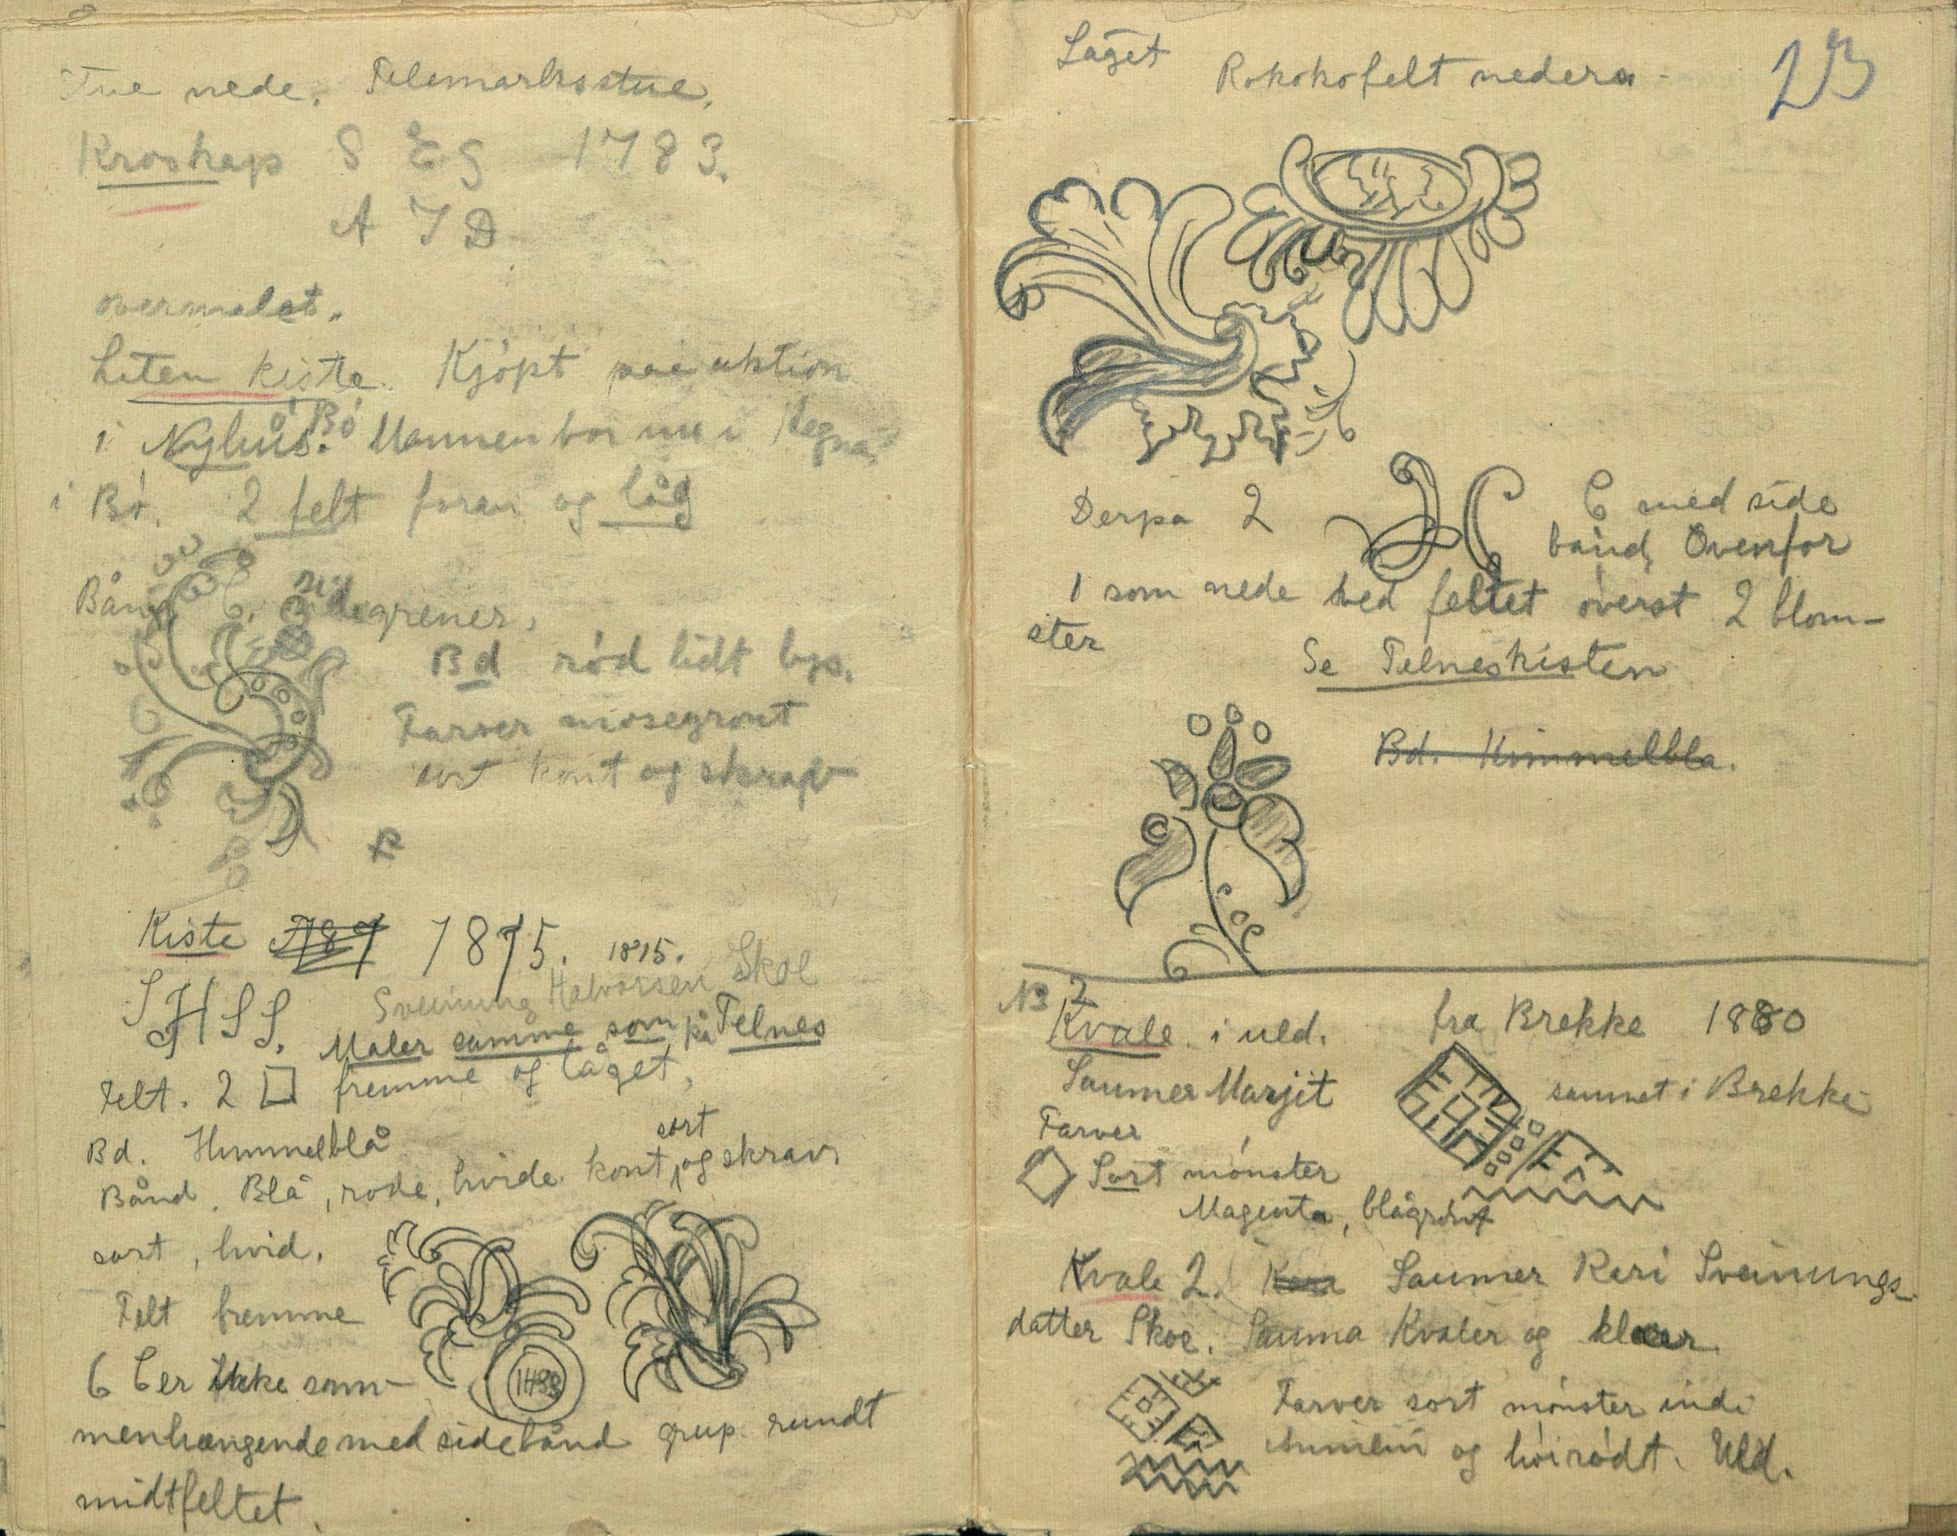 Tue nede. Telemarksstue.
Kroskap S E G 1783.
A I D
overmalet.
Liten kiste. Kjöpt paa auktion
i Nyhus. Bö Mannen bor nu i
i Bö. 2 felt foran og låg
Bånd C. sidegrener.
Bd rød lidt lys.
Farver mosegrønt
sort kont og skrap
Kiste 1875. 1815.
S H S S. Sveinung Halvorsen Skoe
Maler samme som på Telnes
Felt. 2 fremme og låget.
Bd. Himmelblå
Bånd. Blå, røde, hvide kont, sort og skrav.
sort, hvid.
Felt fremme
IHSS
6 C er ikke sam-
menhængende med sidebånd grup. rundt
midtfeltet.
Låget Rokokofelt nederst
23
Derpå 2 C med side
bånd. Ovenfor
1 som nede ved feltet øverst 2 blom-
ster
Se Telneskisten
Bd. Himmelbla.
NB 2
Kvale i uld. fra Brekke 1880
Saumer Marjit saumet i Brekke
Farver
Sort mönster
Magenta, blågrønt
Kvale 2. Saumer Kari Sveinungs-
datter Skoe. Sauma Kvaler og klæer.
Farver sort mønster indi
og höirödt. Uld.